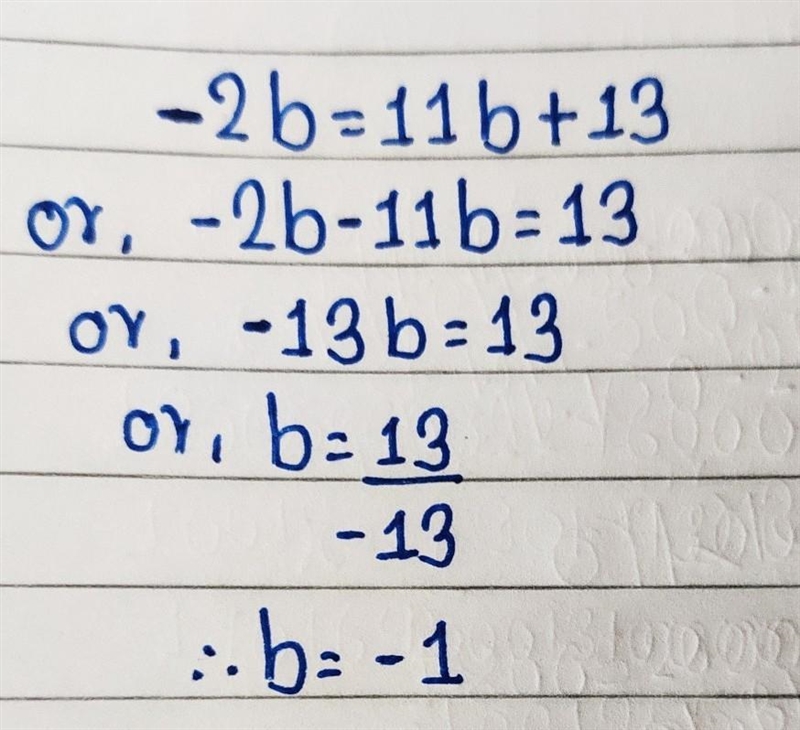 -2b=11b+13
or, -2b-11b=13
or, -13b=13
or, b=13
-13
∴ b=-1